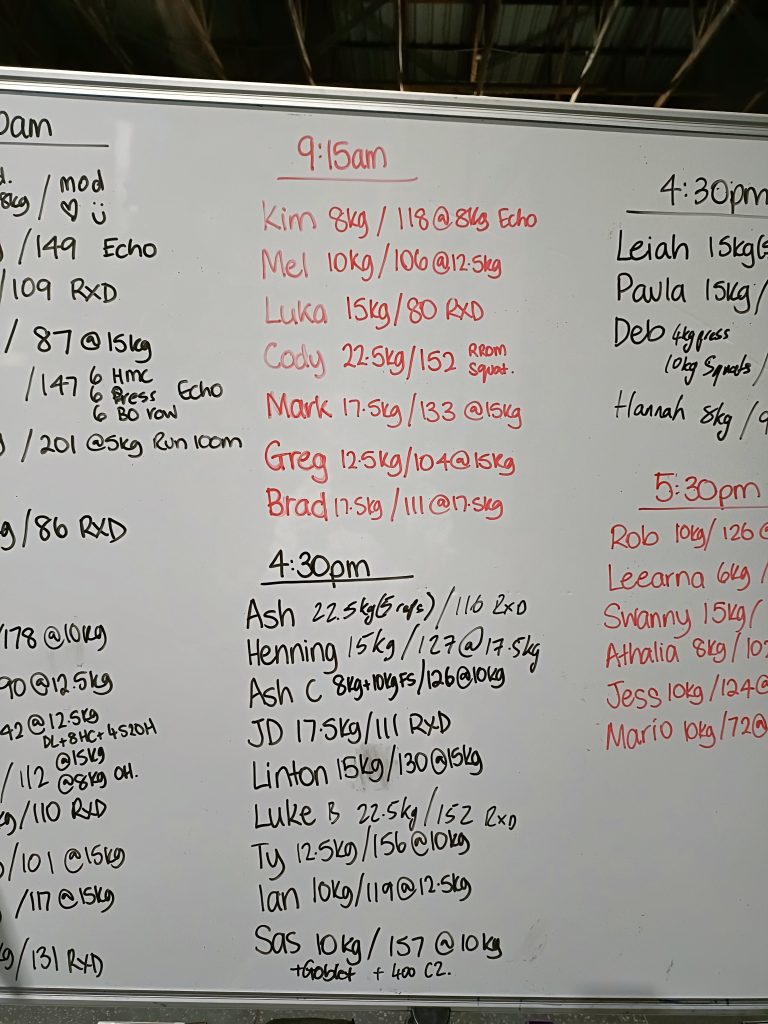 0am
8kg / mod
♡ ü
/149 Echo
/109 RXD
/ 87 @15kg
/147 6 Hmc
6 Press Echo
6 BO row
/201 @5kg Run 100m
g/86 RXD
/178 @10kg
90@12.5kg
42@12.5kg
DL+8HC+4S2OH
@15kg
/112 @8kg OH.
kg/110 RXD
/101 @15kg
/117 @15kg
kg/131 RXD
9:15am
Kim 8kg / 118@8kg Echo
Mel 10kg/106@12.5kg
Luka 15kg/80 RXD
Cody 22.5kg/152 RROM
Squat.
Mark 17.5kg/133 @15kg
Greg 12.5kg/104@15kg
Brad 17.5kg/111@17.5kg
4:30pm
Ash 22.5kg(5 reps)/116 RXD
Henning 15kg/127@17.5kg
Ash C 8kg+10kgFS/126@10kg
JD 17.5kg/111 RXD
Linton 15kg/130@15kg
Luke B 22.5kg/152 RXD
Ty 12.5kg/156@10kg
Ian 10kg/119@12.5kg
Sas 10kg/157 @10kg
+Goblet + 400 C2.
4:30pm
Leiah 15kg(5
Paula 15kg/
Deb 4kg press
10kg Squats/
Hannah 8kg/9
5:30pm
Rob 10kg/126@
Leearna 6kg/
Swanny 15kg/
Athalia 8kg/102
Jess 10kg/124@
Mario 10kg/72@